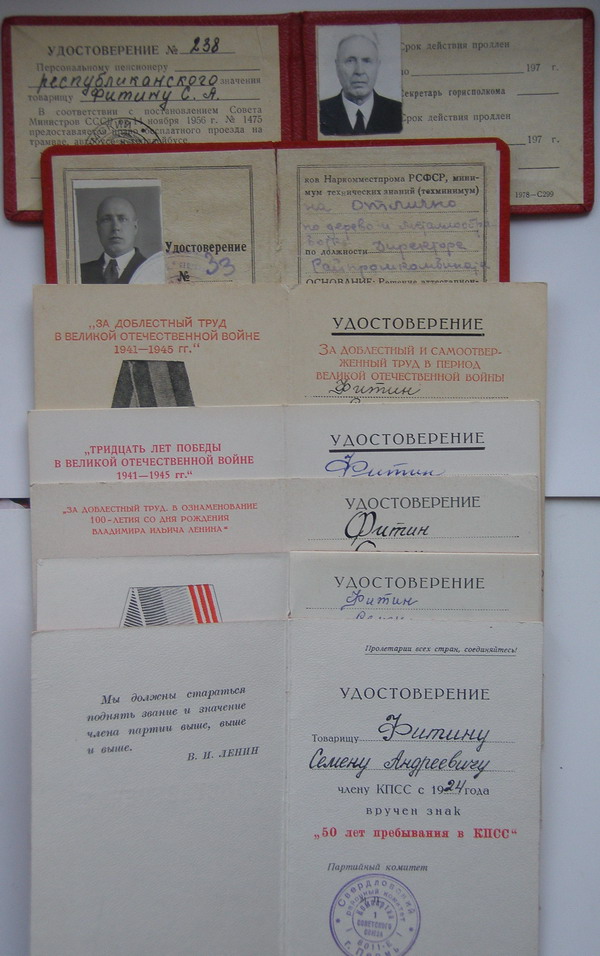 УДОСТОВЕРЕНИЕ № 238
Персональному пенсионеру
республиканского значения
товарищу Фитину С. А.
В соответствии с постановлением Совета
Министров СССР от 14 ноября 1956 г. № 1475
предоставляется право бесплатного проезда на
трамвае,
Срок действия продлен
по 197 г.
Секретарь горисполкома
Срок действия продлен
197 г.
1978—С299
Удостоверение
№ 33
ков Наркомместпрома РСФСР, мини-
мум технических знаний (техминимум)
на Отлично
по дерево и металлообра
ботке
по должности Директора
Райпромкомбината
„ЗА ДОБЛЕСТНЫЙ ТРУД
В ВЕЛИКОЙ ОТЕЧЕСТВЕННОЙ ВОЙНЕ
1941—1945 гг.“
УДОСТОВЕРЕНИЕ
ЗА ДОБЛЕСТНЫЙ И САМООТВЕР-
ЖЕННЫЙ ТРУД В ПЕРИОД
ВЕЛИКОЙ ОТЕЧЕСТВЕННОЙ ВОЙНЫ
Фитин
„ТРИДЦАТЬ ЛЕТ ПОБЕДЫ
В ВЕЛИКОЙ ОТЕЧЕСТВЕННОЙ ВОЙНЕ
1941—1945 гг.“
УДОСТОВЕРЕНИЕ
Фитин
„ЗА ДОБЛЕСТНЫЙ ТРУД. В ОЗНАМЕНОВАНИЕ
100-ЛЕТИЯ СО ДНЯ РОЖДЕНИЯ
ВЛАДИМИРА ИЛЬИЧА ЛЕНИНА“
УДОСТОВЕРЕНИЕ
Фитин
УДОСТОВЕРЕНИЕ
Фитин
Мы должны стараться
поднять звание и значение
члена партии выше, выше
и выше.
В. И. ЛЕНИН
Пролетарии всех стран, соединяйтесь!
УДОСТОВЕРЕНИЕ
Товарищу Фитину
Семену Андреевичу
члену КПСС с 1924 года
вручен знак
„50 лет пребывания в КПСС“
Партийный комитет
Свердловский
районный комитет
г. Пермь